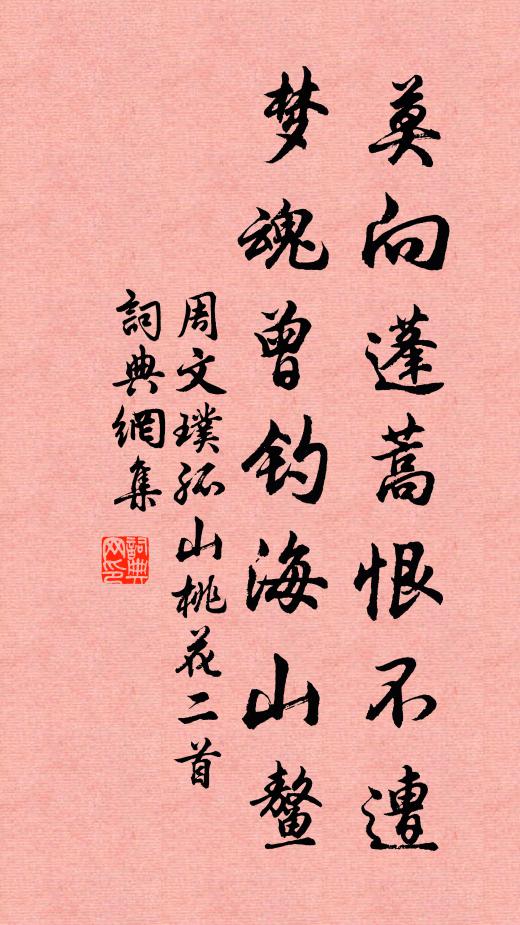 莫向蓬蒿恨不遭
梦魂曾钓海山鳌
周文璞孤山桃花二首
詞典網集
詞典网印